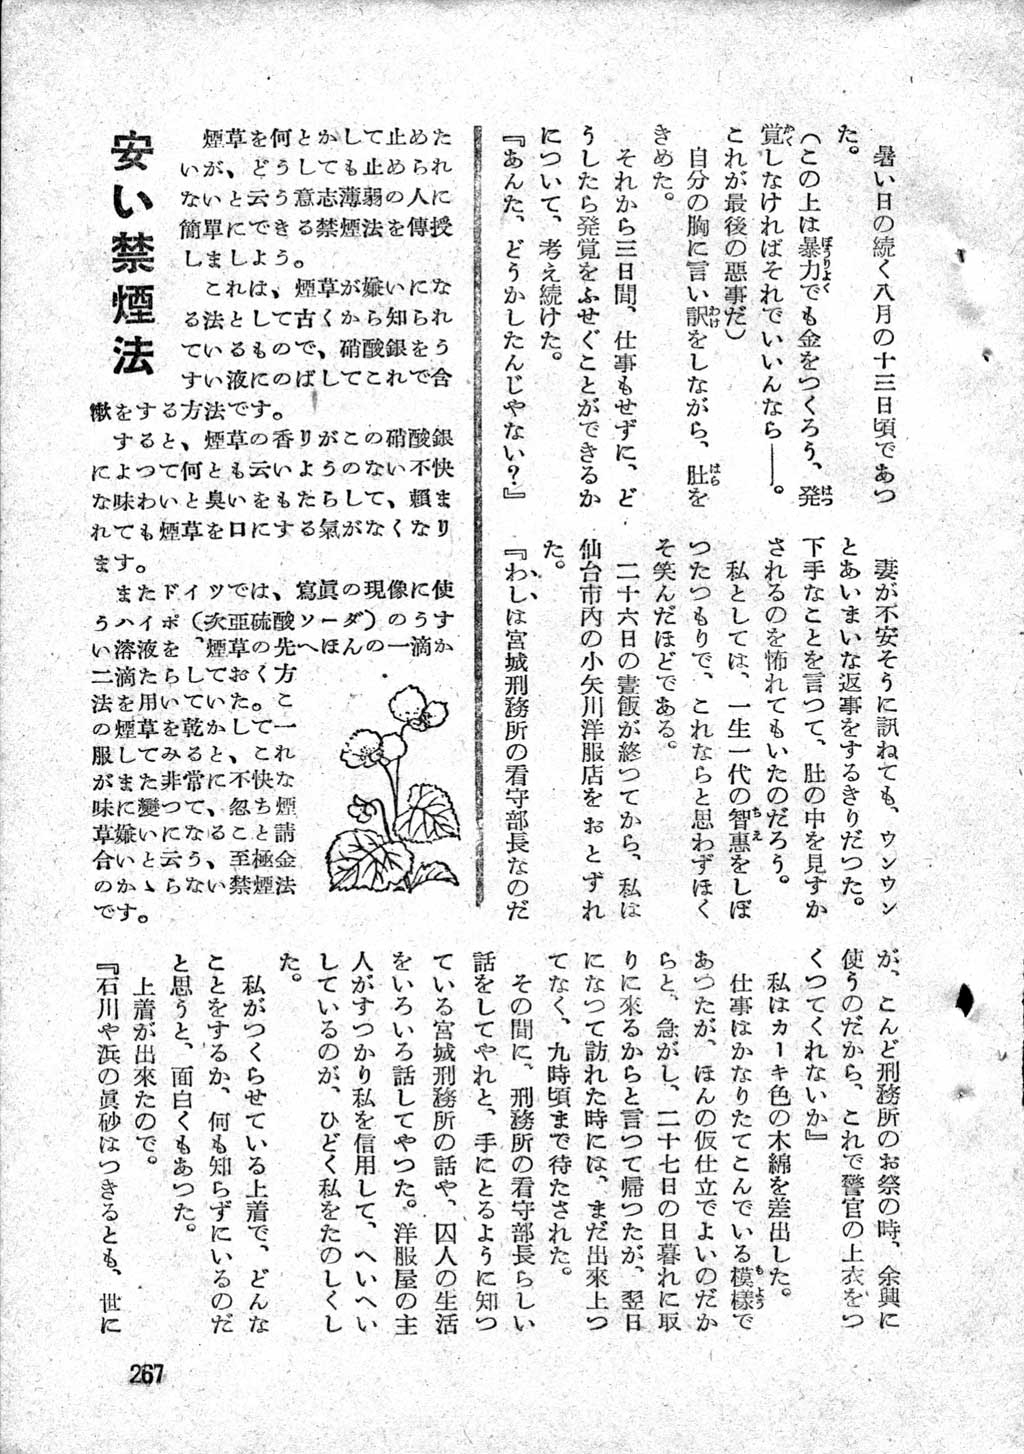 暑い日の続く八月の十三日頃であつ
た。
(この上は暴力でも金をつくろう、発
覚しなければそれでいいんなら――。
これが最後の悪事だ)
自分の胸に言い訳をしながら、肚を
きめた。
それから三日間、仕事もせずに、ど
うしたら発覚をふせぐことができるか
について、考え続けた。
『あんた、どうかしたんじやない？』
妻が不安そうに訊ねても、ウンウン
とあいまいな返事をするきりだつた。
下手なことを言つて、肚の中を見すか
されるのを怖れてもいたのだろう。
私としては、一生一代の智惠をしぼ
つたつもりで、これならと思わずほく
そ笑んだほどである。
二十六日の晝飯が終つてから、私は
仙台市内の小矢川洋服店をおとずれ
た。
『わしは宮城刑務所の看守部長なのだ
が、こんど刑務所のお祭の時、余興に
使うのだから、これで警官の上衣をつ
くつてくれないか』
私はカーキ色の木綿を差出した。
仕事はかなりたてこんでいる模様で
あつたが、ほんの仮仕立でよいのだか
らと、急がし、二十七日の日暮れに取
りに来るからと言つて帰つたが、翌日
になつて訪れた時には、まだ出來上つ
てなく、九時頃まで待たされた。
その間に、刑務所の看守部長らしい
話をしてやれと、手にとるように知つ
ている宮城刑務所の話や、囚人の生活
をいろいろ話してやつた。洋服屋の主
人がすつかり私を信用して、へいへい
しているのが、ひどく私をたのしくし
た。
私がつくらせている上着で、どんな
ことをするか、何も知らずにいるのだ
と思うと、面白くもあつた。
上着が出來たので。
『石川や浜の眞砂はつきるとも、世に
安い禁煙法
煙草を何とかして止めた
いが、どうしても止められ
ないと云う意志薄弱の人に
簡單にできる禁煙法を傳授
しましよう。
これは、煙草が嫌いにな
る法として古くから知られ
ているもので、硝酸銀をう
すい液にのばしてこれで含
嗽をする方法です。
すると、煙草の香りがこの硝酸銀
によつて何とも云いようのない不快
な味わいと臭いをもたらして、賴ま
れても煙草を口にする氣がなくなり
ます。
またドイツでは、寫眞の現像に使
うハイポ(次亜硫酸ソーダ)のうす
い溶液を、煙草の先へほんの一滴か
二滴たらしておく方
法を用いていた。こ
の煙草を乾かして一
服してみると、これ
がまた非常に不快な
味に變つて、忽ち煙
草嫌いになること請
合いと云う、至極金
のかゝらない禁煙法
です。
267